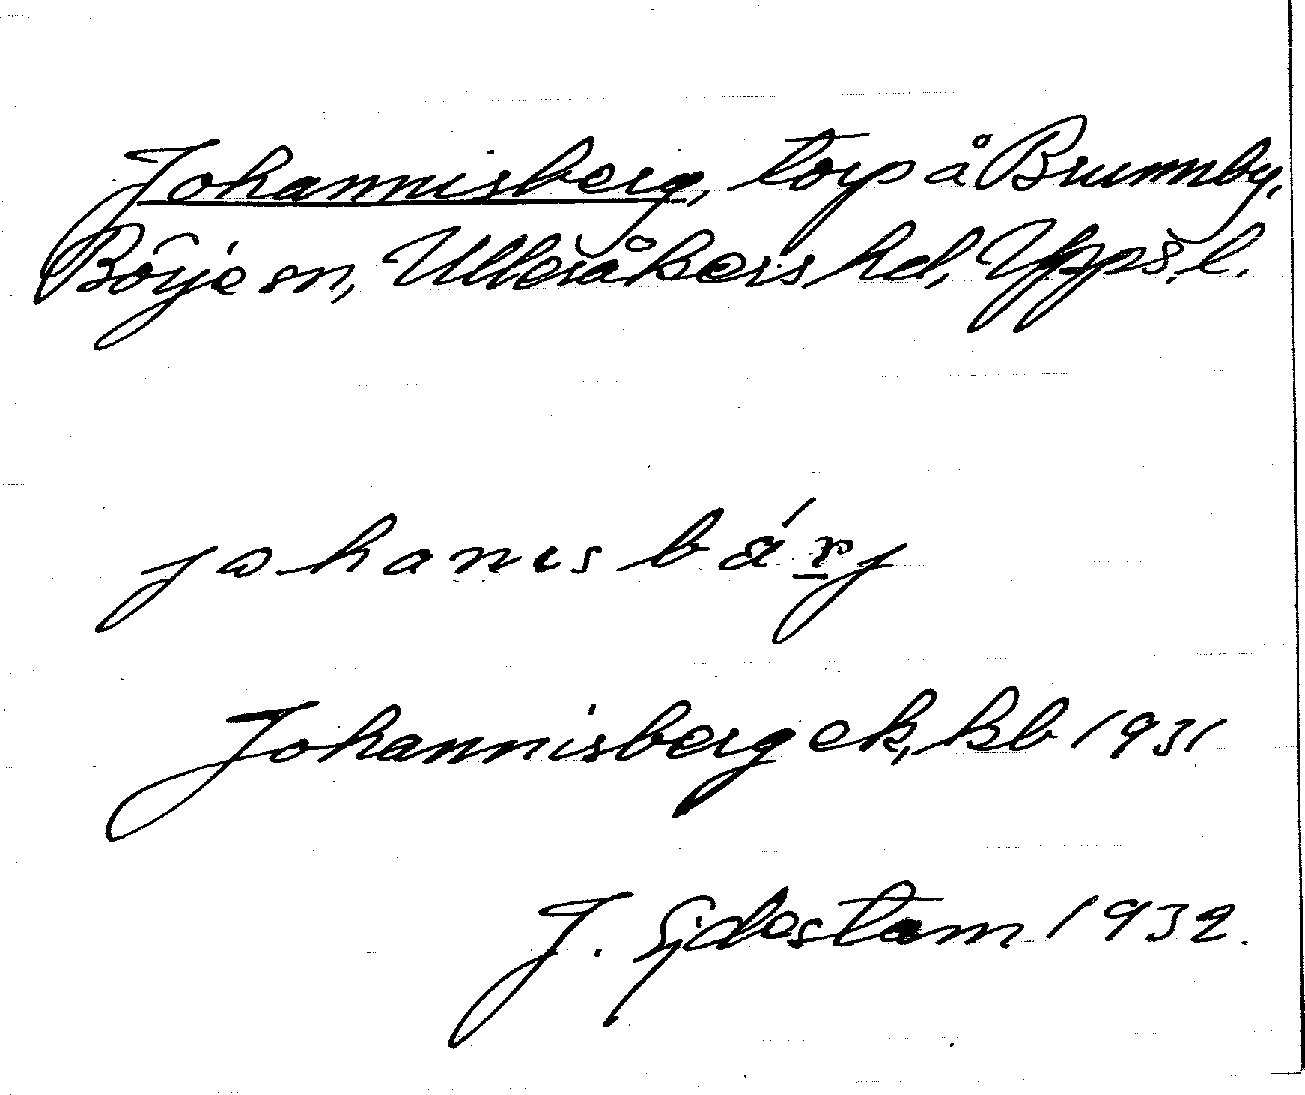 Johannisberg, torp å Brunnby,
Börje sn, Ulleråkers hd, Upps. l.
johanisbä́rj
Johannisberg ek, kb 1931
J. Götlestam 1932.